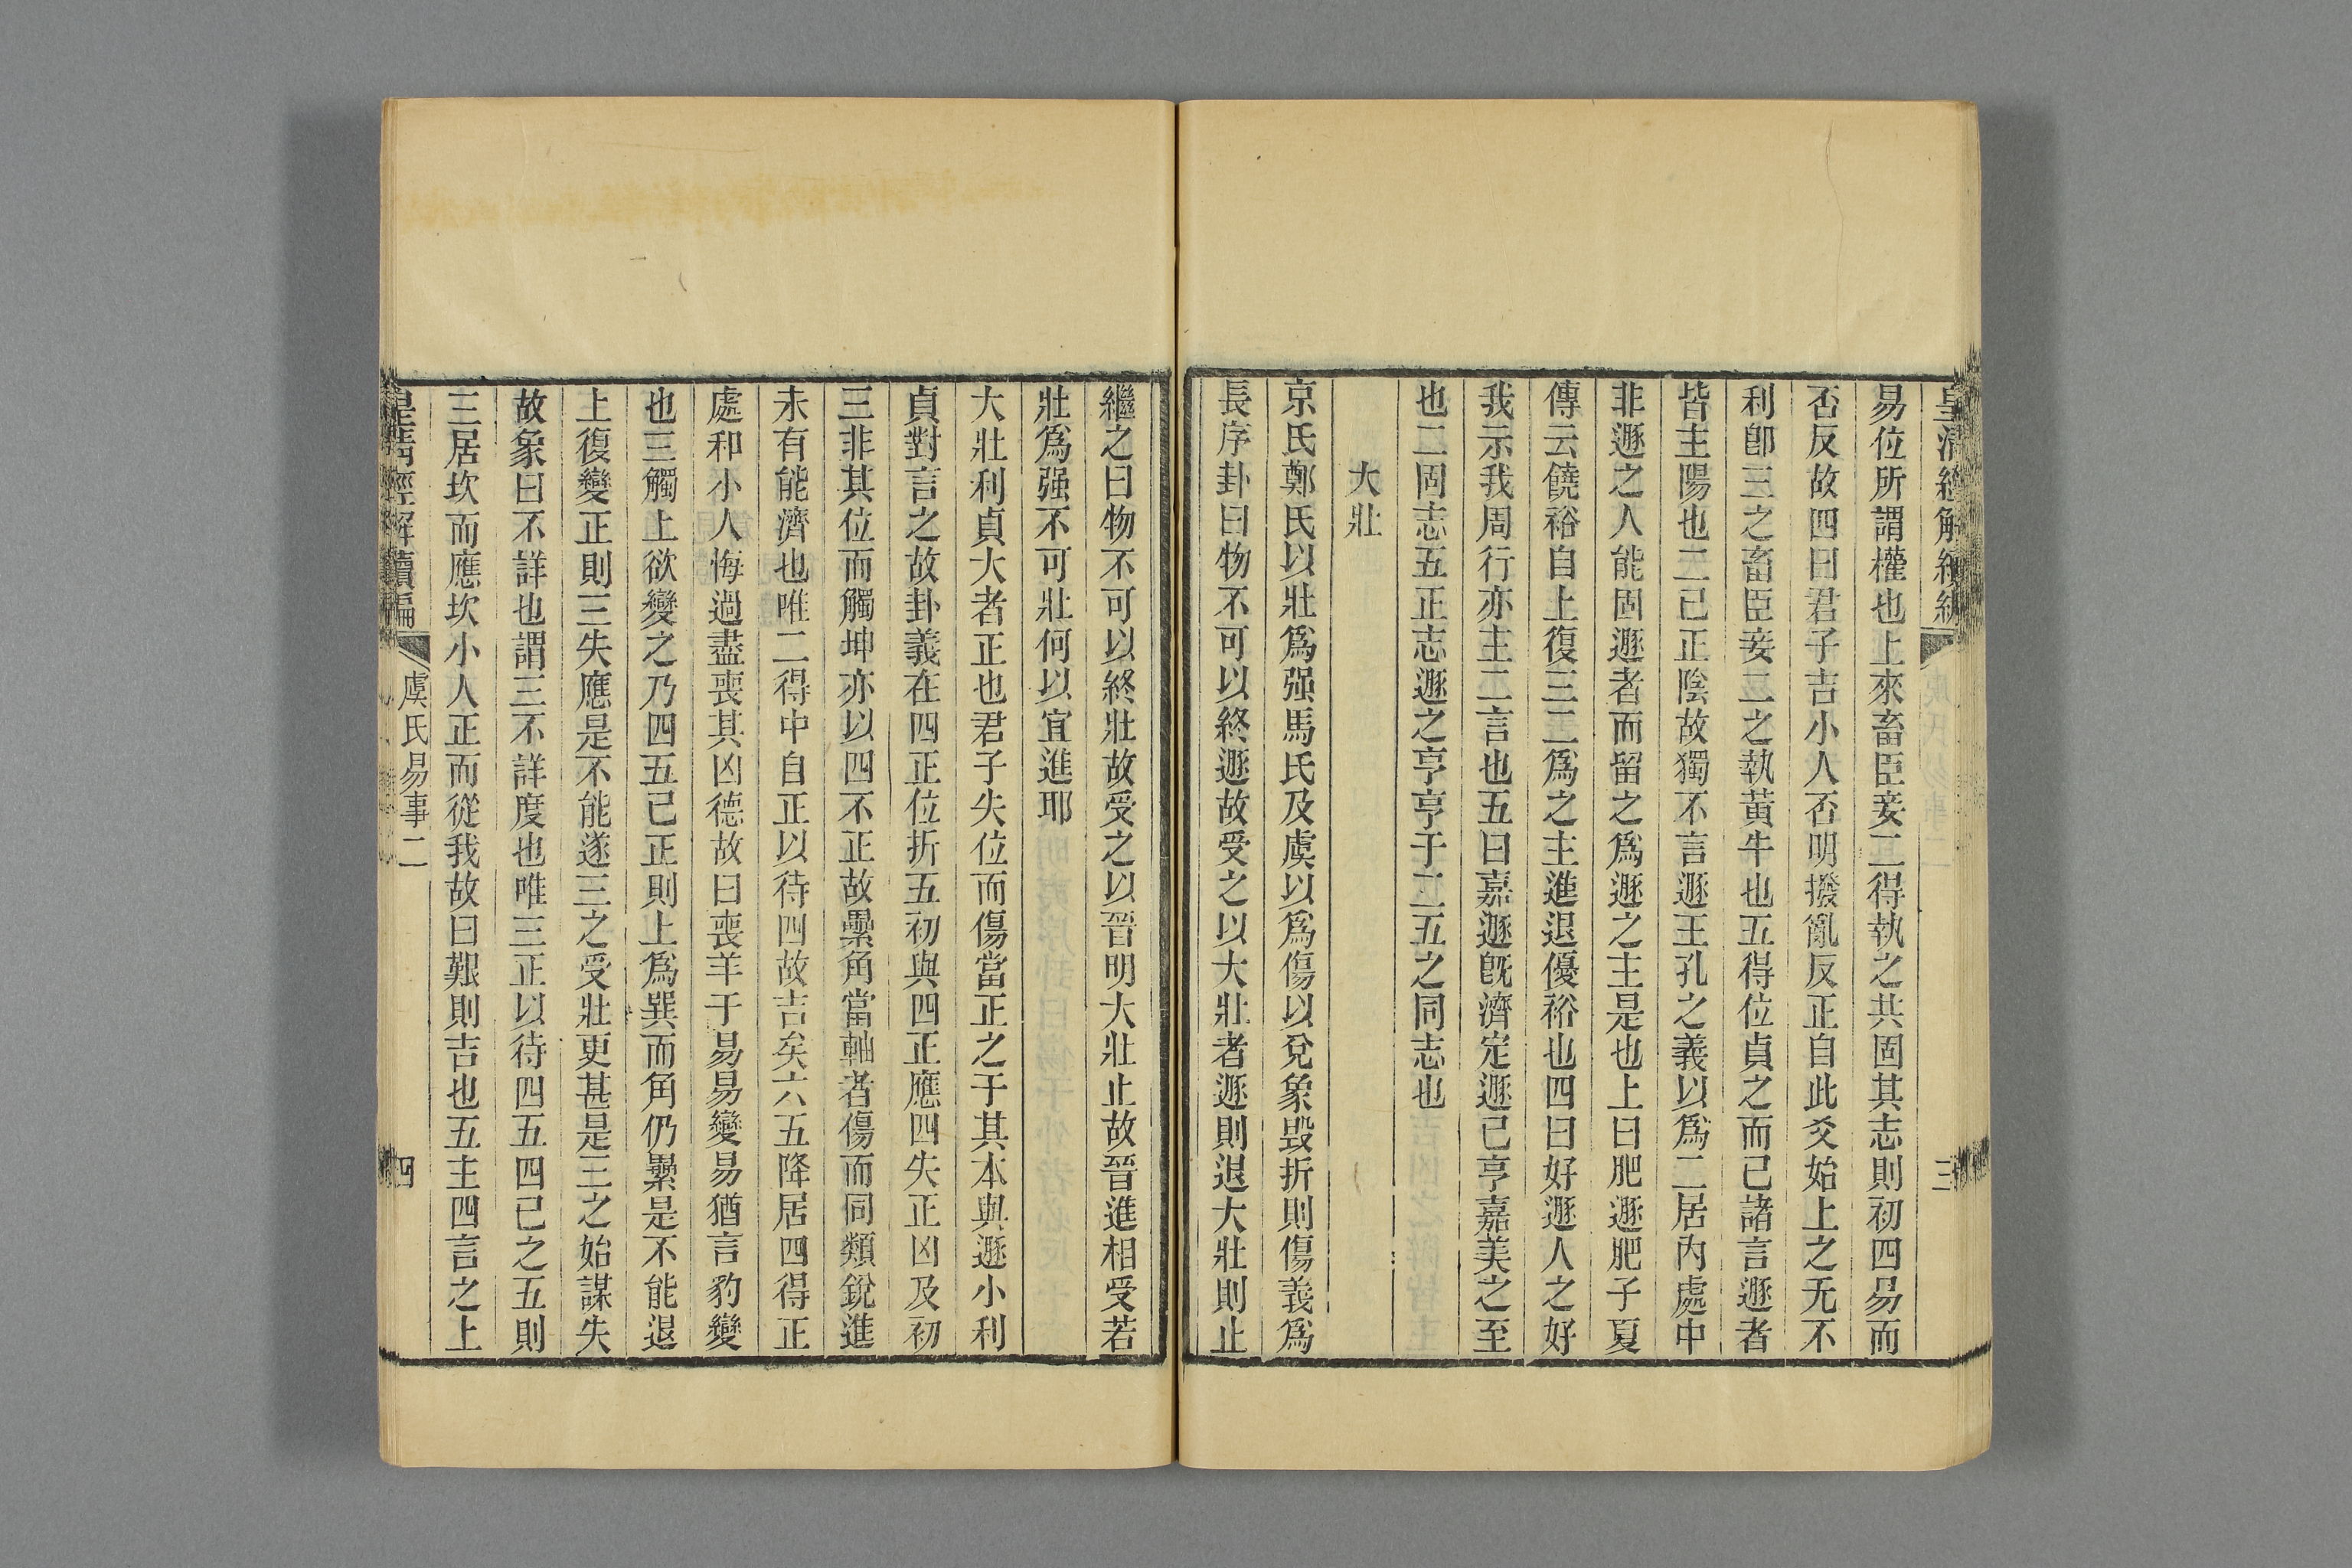 易位所謂權也上來畜臣妾二得執之共固其志則初四易而
否反故四曰君子吉小人否明撥亂反正自此爻始上之无不
利卽三之畜臣妾二之執黃牛也五得位貞之而已諸言遯者
皆主陽也二已正陰故獨不言遯王孔之義以爲二居內處中
非遯之人能固遯者而留之爲遯之主是也上曰肥遯肥子夏
傳云饒裕自上復三二爲之主進退優裕也四曰好遯人之好
我示我周行亦主二言也五曰嘉遯旣濟定遯已亨嘉美之至
也二固志五正志遯之亨亨于二五之同志也
大壯
京氏鄭氏以壯爲强馬氏及虞以爲傷以兌象毀折則傷義爲
長序卦曰物不可以終遯故受之以大壯者遯則退大壯則止
三
繼之曰物不可以終壯故受之以晉明大壯止故晉進相受若
壯爲强不可壯何以宜進耶
大壯利貞大者正也君子失位而傷當正之于其本與遯小利
貞對言之故卦義在四正位折五初與四正應四失正凶及初
三非其位而觸坤亦以四不正故纍角當軸者傷而同類銳進
未有能濟也唯二得中自正以待四故吉矣六五降居四得正
處和小人悔過盡喪其凶德故曰喪羊于易易變易猶言豹變
也三觸上欲變之乃四五已正則上爲巽而角仍纍是不能退
上復變正則三失應是不能遂三之受壯更甚是三之始謀失
故象曰不詳也謂三不詳度也唯三正以待四五四已之五則
三居坎而應坎小人正而從我故曰艱則吉也五主四言之上
皇淸經解續編
虞氏易事二
四